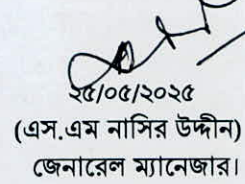 ২৫/০৫/২০২৫
(এস.এম নাসির উদ্দীন)
জেনারেল ম্যানেজার।